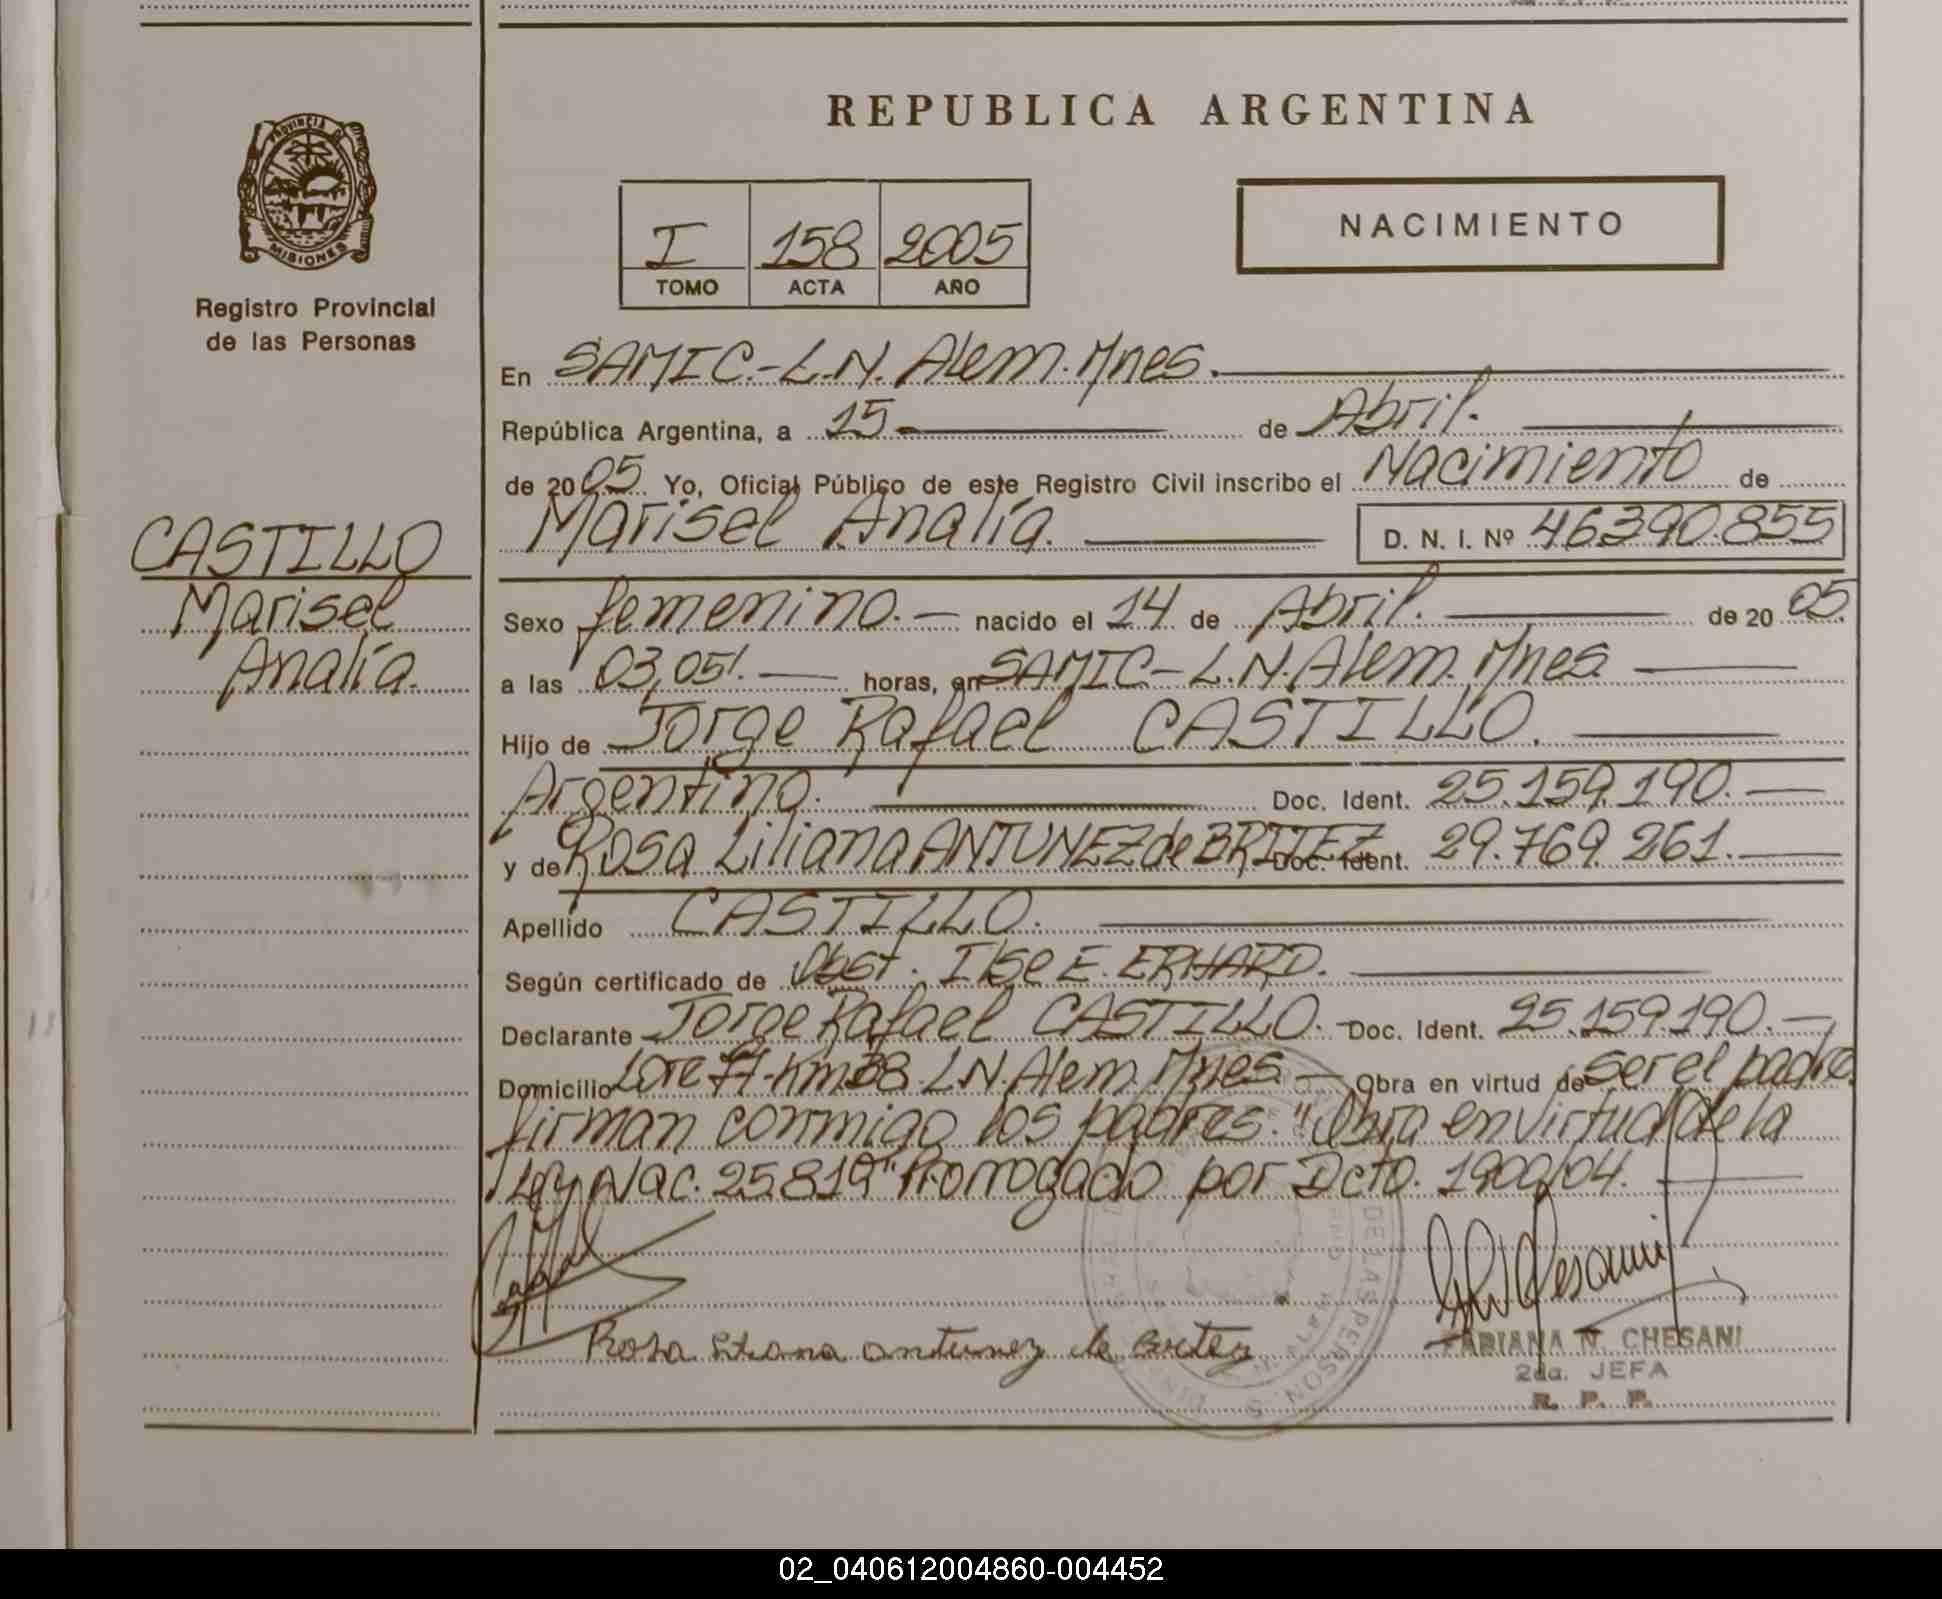 REPUBLICA ARGENTINA
PROVINCIA DE
MISIONES
Registro Provincial
de las Personas
I 158 2005
TOMO ACTA AÑO
NACIMIENTO
CASTILLO
Marisel
Analía.
En SAMIC.-L.N. Alem. Mnes.
República Argentina, a 15 de Abril.
de 2005 Yo, Oficial Público de este Registro Civil inscribo el Nacimiento de
Marisel Analía. D. N. I. Nº 46.390.855
Sexo femenino. nacido el 14 de Abril. de 2005.
a las 03,05'. horas, en SAMIC-L.N. Alem. Mnes.
Hijo de Jorge Rafael CASTILLO.
Argentino. Doc. Ident. 25.159.190.
y de Rosa Liliana ANTUNEZ de BRITEZ Doc. Ident. 29.769.261.
Apellido CASTILLO.
Según certificado de Obst. Ilse E. ERHARD.
Declarante Jorge Rafael CASTILLO. Doc. Ident. 25.159.190.
Domicilio Lote Km 38. L.N. Alem. Mnes Obra en virtud de ser el padre.
firman conmigo los padres. "Obra en virtud de la
Ley Nac. 25819" Prorrogado por Dcto. 1900/04.
Rosa Liliana antunez de Britez
FABIANA N. CHESANI
2da. JEFA
R. P. P.
DE LAS PERSONAS
02_040612004860-004452